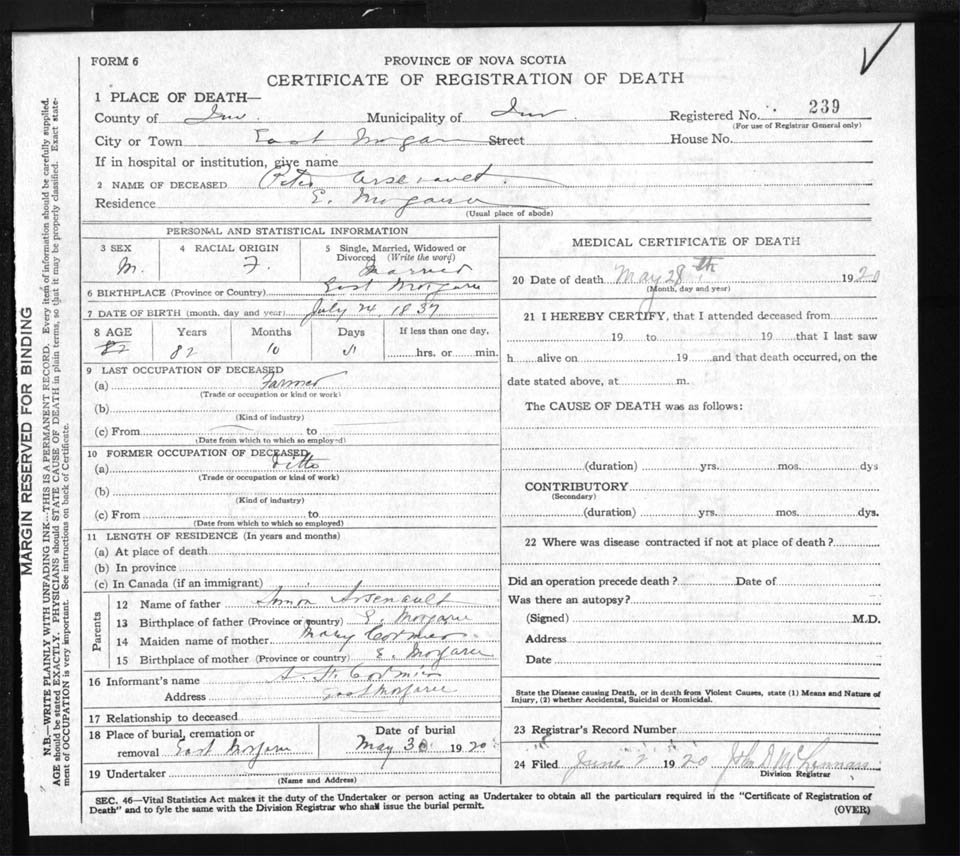 FORM 6
PROVINCE OF NOVA SCOTIA
CERTIFICATE OF REGISTRATION OF DEATH
1 PLACE OF DEATH—
County of Inv. Municipality of Inv Registered No. 239
(For use of Registrar General only)
City or Town East Margaree Street House No.
If in hospital or institution, give name
2 NAME OF DECEASED Peter Arsenault
Residence E. Margaree
(Usual place of abode)
PERSONAL AND STATISTICAL INFORMATION
3 SEX 4 RACIAL ORIGIN 5 Single, Married, Widowed or Divorced (Write the word)
M. F. Married
6 BIRTHPLACE (Province or Country) East Margaree
7 DATE OF BIRTH (month, day and year) July 24, 1837
8 AGE Years Months Days If less than one day,
82 82 10 hrs. or min.
9 LAST OCCUPATION OF DECEASED
(a) Farmer
(Trade or occupation or kind or work)
(b)
(Kind of industry)
(c) From to
(Date from which to which so employed)
10 FORMER OCCUPATION OF DECEASED
(a) ditto
(Trade or occupation or kind of work)
(b)
(Kind of industry)
(c) From to
(Date from which to which so employed)
11 LENGTH OF RESIDENCE (In years and months)
(a) At place of death
(b) In province
(c) In Canada (if an immigrant)
Parents
12 Name of father Simon Arsenault
13 Birthplace of father (Province or country) E. Margaree
14 Maiden name of mother Mary Cormier
15 Birthplace of mother (Province or country) E. Margaree
16 Informant's name Cormier
Address East Margaree
17 Relationship to deceased
18 Place of burial, cremation or removal East Margaree
Date of burial May 30 1920
19 Undertaker
(Name and Address)
MEDICAL CERTIFICATE OF DEATH
20 Date of death May 28th 1920
(Month, day and year)
21 I HEREBY CERTIFY, that I attended deceased from
19 to 19 that I last saw
h alive on 19 and that death occurred, on the
date stated above, at m.
The CAUSE OF DEATH was as follows:
(duration) yrs. mos. dys
CONTRIBUTORY
(Secondary)
(duration) yrs. mos. dys.
22 Where was disease contracted if not at place of death?
Did an operation precede death? Date of
Was there an autopsy?
(Signed) M.D.
Address
Date
State the Disease causing Death, or in death from Violent Causes, state (1) Means and Nature of
Injury, (2) whether Accidental, Suicidal or Homicidal.
23 Registrar's Record Number
24 Filed June 2 1920 McLennan
Division Registrar
SEC. 46—Vital Statistics Act makes it the duty of the Undertaker or person acting as Undertaker to obtain all the particulars required in the "Certificate of Registration of
Death" and to fyle the same with the Division Registrar who shall issue the burial permit.
(OVER)
MARGIN RESERVED FOR BINDING
N.B.—WRITE PLAINLY WITH UNFADING INK—THIS IS A PERMANENT RECORD. Every item of information should be carefully supplied.
AGE should be stated EXACTLY. PHYSICIANS should STATE CAUSE OF DEATH in plain terms, so that it may be properly classified. Exact state-
ment of OCCUPATION is very important. See instructions on back of Certificate.